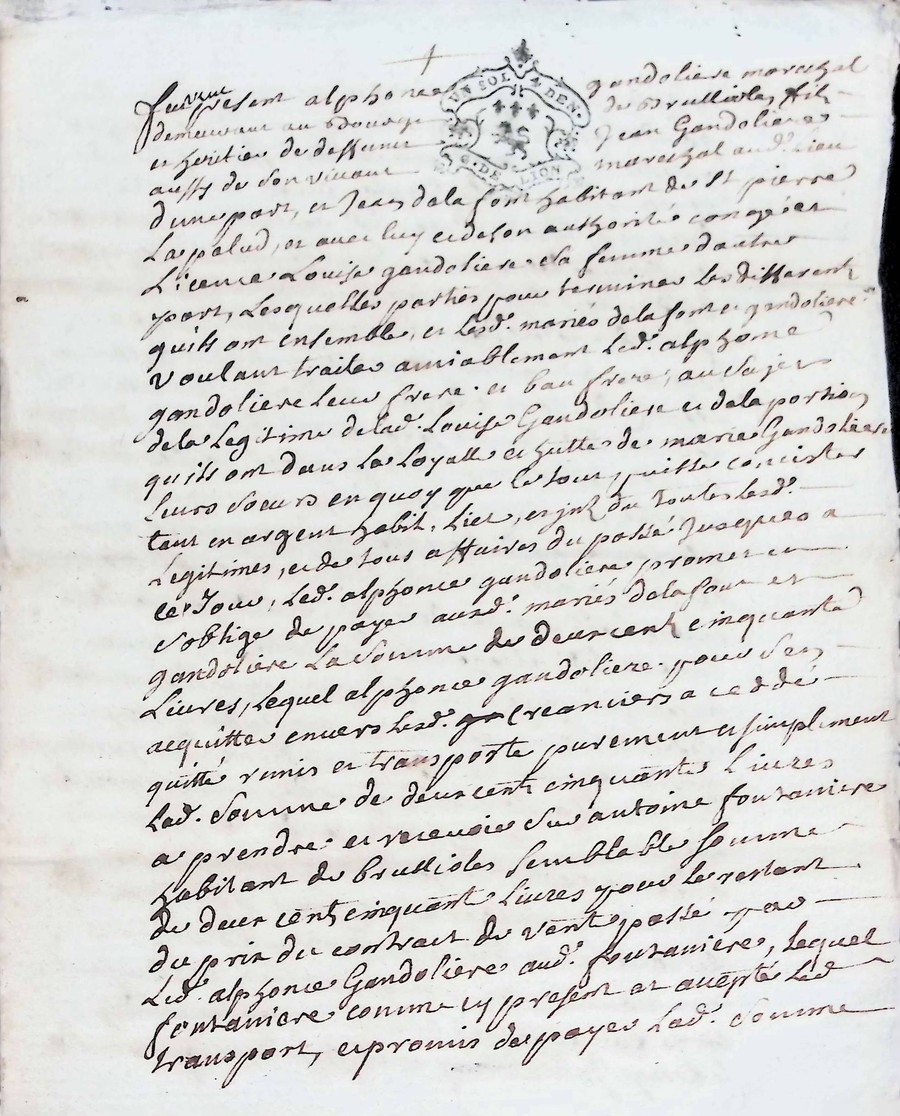 furent present alphonce gandoliere marechal
demeurant au Bourg de Brullioles fils
et heritier de deffunct Jean Gandoliere
aussy de son vivant marechal aud. Lieu
UN SOL 4 DEN.
G. DE LION
d'une part, et Jean dela font habitant de St pierre
La palud, et avec luy et de son authorité congé et
Licence Louise gandoliere sa femme d'autre
part, Lesquelles parties pour terminer les differents
quils ont ensemble, et lesd. mariés dela font et gandoliere
voulant traiter amiablement led. alphonce
gandoliere leur frere et beau frere, au sujet
dela Legitime delad. Louise Gandoliere et dela portion
quils ont dans la de marie Gandoliere
leurs soeurs en quoy que le tout puisse concister
tant en argent habit, Liet, du toutes lesd.
Legitimes, et de tous affaires du passé jusques a
ce Jour, Led. alphonce gandoliere promet et
s'oblige de payer ausd. mariés dela font et
gandoliere La somme de deux cent cinquante
Livres, Lequel alphonce gandoliere pour sen
acquitter envers lesd. Creanciers a ceddé
quitté remis et transporté purement et simplement
Lad. somme de deux cent cinquante Livres
a prendre et recevoir sur antoine fontaniere
habitant de brullioles semblable somme
de deux cent cinquant Livres pour le restant
du prix du contract de vente passé par
Led. alphonce Gandoliere aud. fontaniere, Lequel
fontaniere comme cy present et accepté Led
transport, et promis de payer Lad. somme